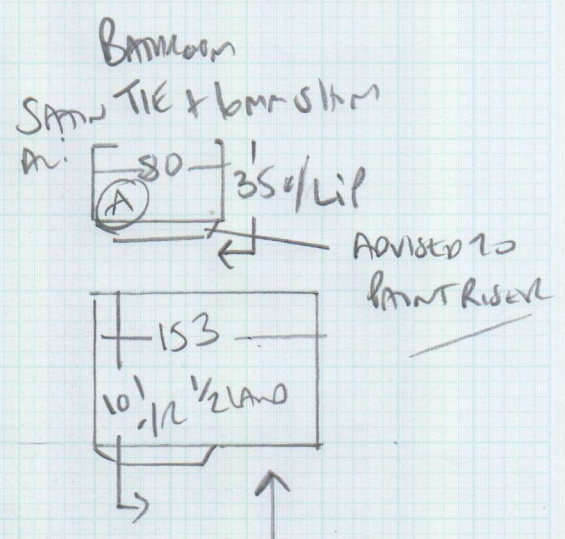 BATHROOM
SATIN TIE + 6mm SHIM
80
35 o/LiP
A
ADVISED TO
PAINT RISER
153
10' 1/2 LAND